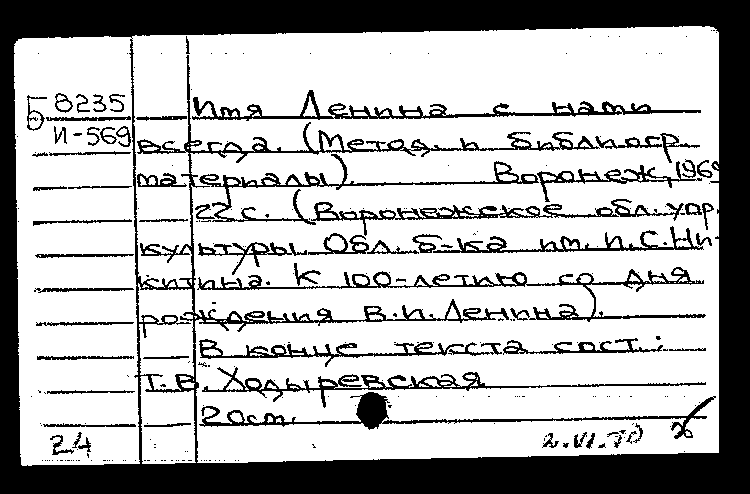 Б 8235
И-569
Имя Ленина с нами
всегда. (Метод. и библиогр.
материалы). Воронеж, 1969
22 с. (Воронежское обл. упр.
культуры. Обл. б-ка им. И.С.Ни-
китина. К 100-летию со дня
рождения В.И.Ленина).
В конце текста сост.:
Т.В. Ходыревская
20 см.
24
2.VI.70